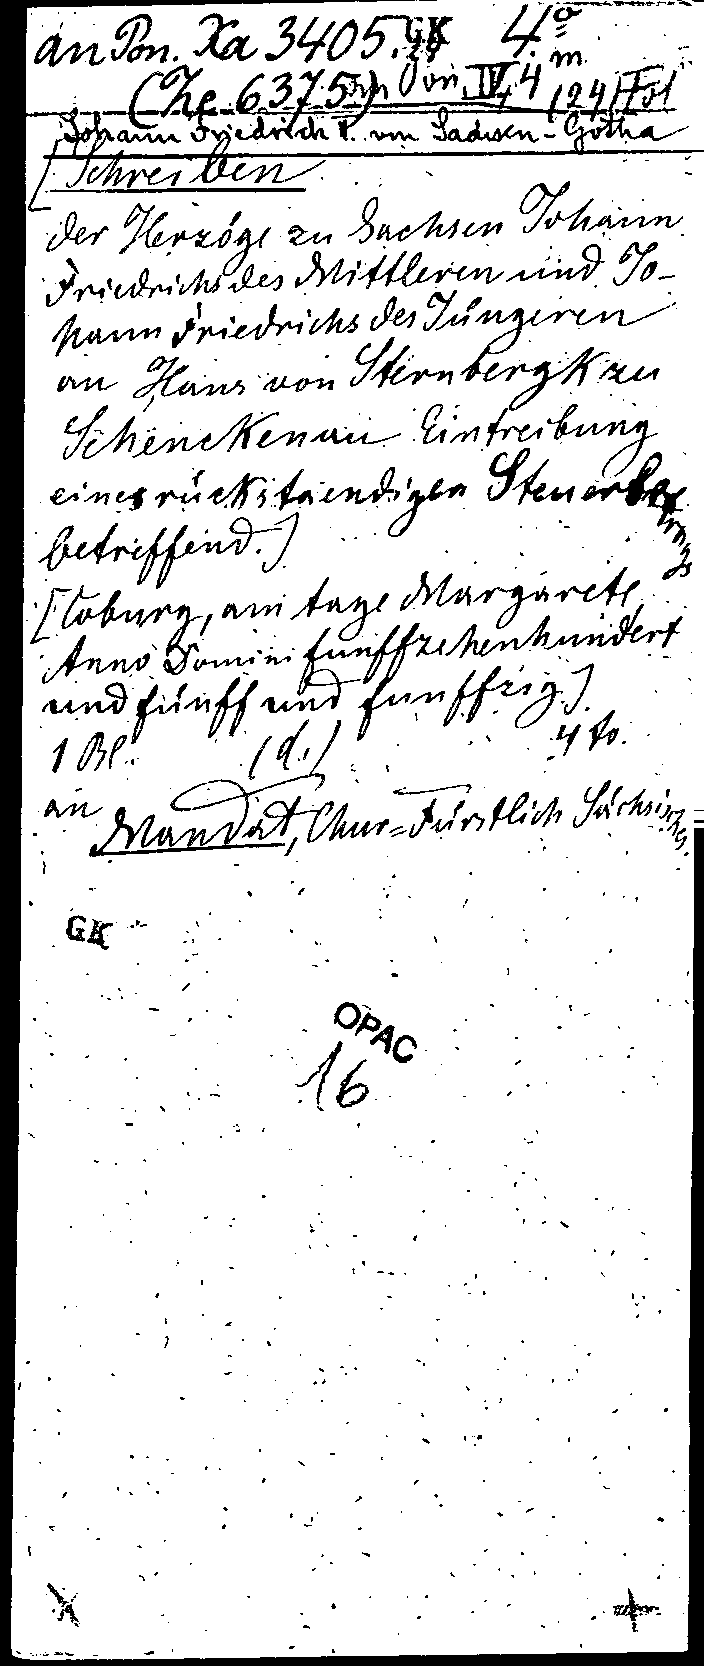 an Pon. Xa 3405. GK 4º
(Zc 6375) an Von IV, 4 m (24) Fol
Johann Friedrich v. von Sachsen-Gotha
[Schreiben
der Herzöge zu Sachsen Johann
Friedrichs des Mittleren und Jo-
hann Friedrichs des Jüngeren
an Hans von Sternbergk zu
Schenckenau Eintreibung
eines rückstaendigen
betreffend.]
[Coburg, am tage Margarete
Anno Domini funffzehenhundert
und fünff und funffzig]
1 Bl. (d.) 4to.
an
Mandat, Chur=Fürstlich Sächsisches.
GK
OPAC
16